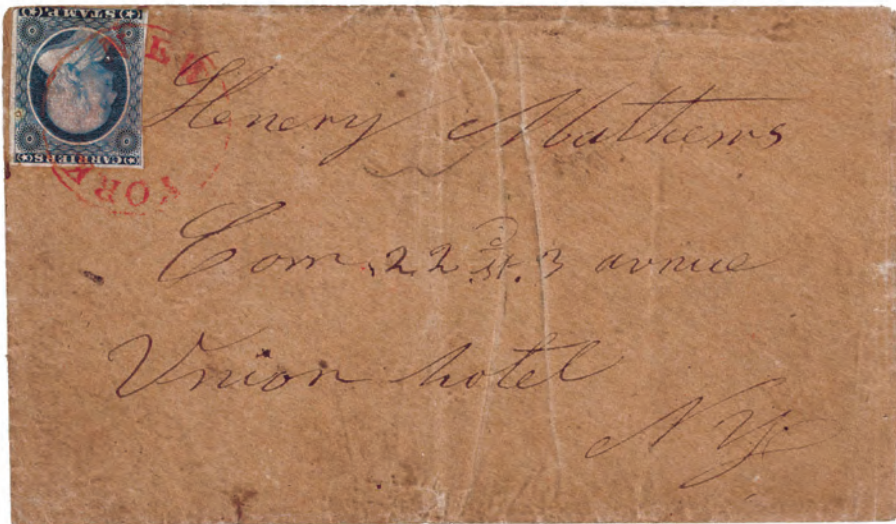 STAMP.
CARRIERS
NEW
YORK
Henery Mathews
Corn. 22 st. 3 avnue
Union hotel
N Y.